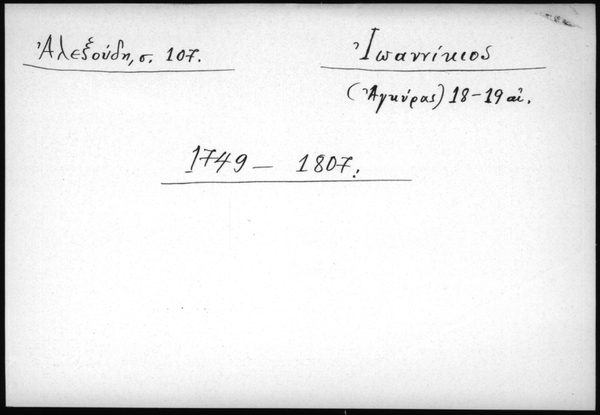 Ἀλεξούδη, σ. 107.
Ἰωαννίκιος
(Ἀγκύρας) 18-19 αἰ.
1749 — 1807.